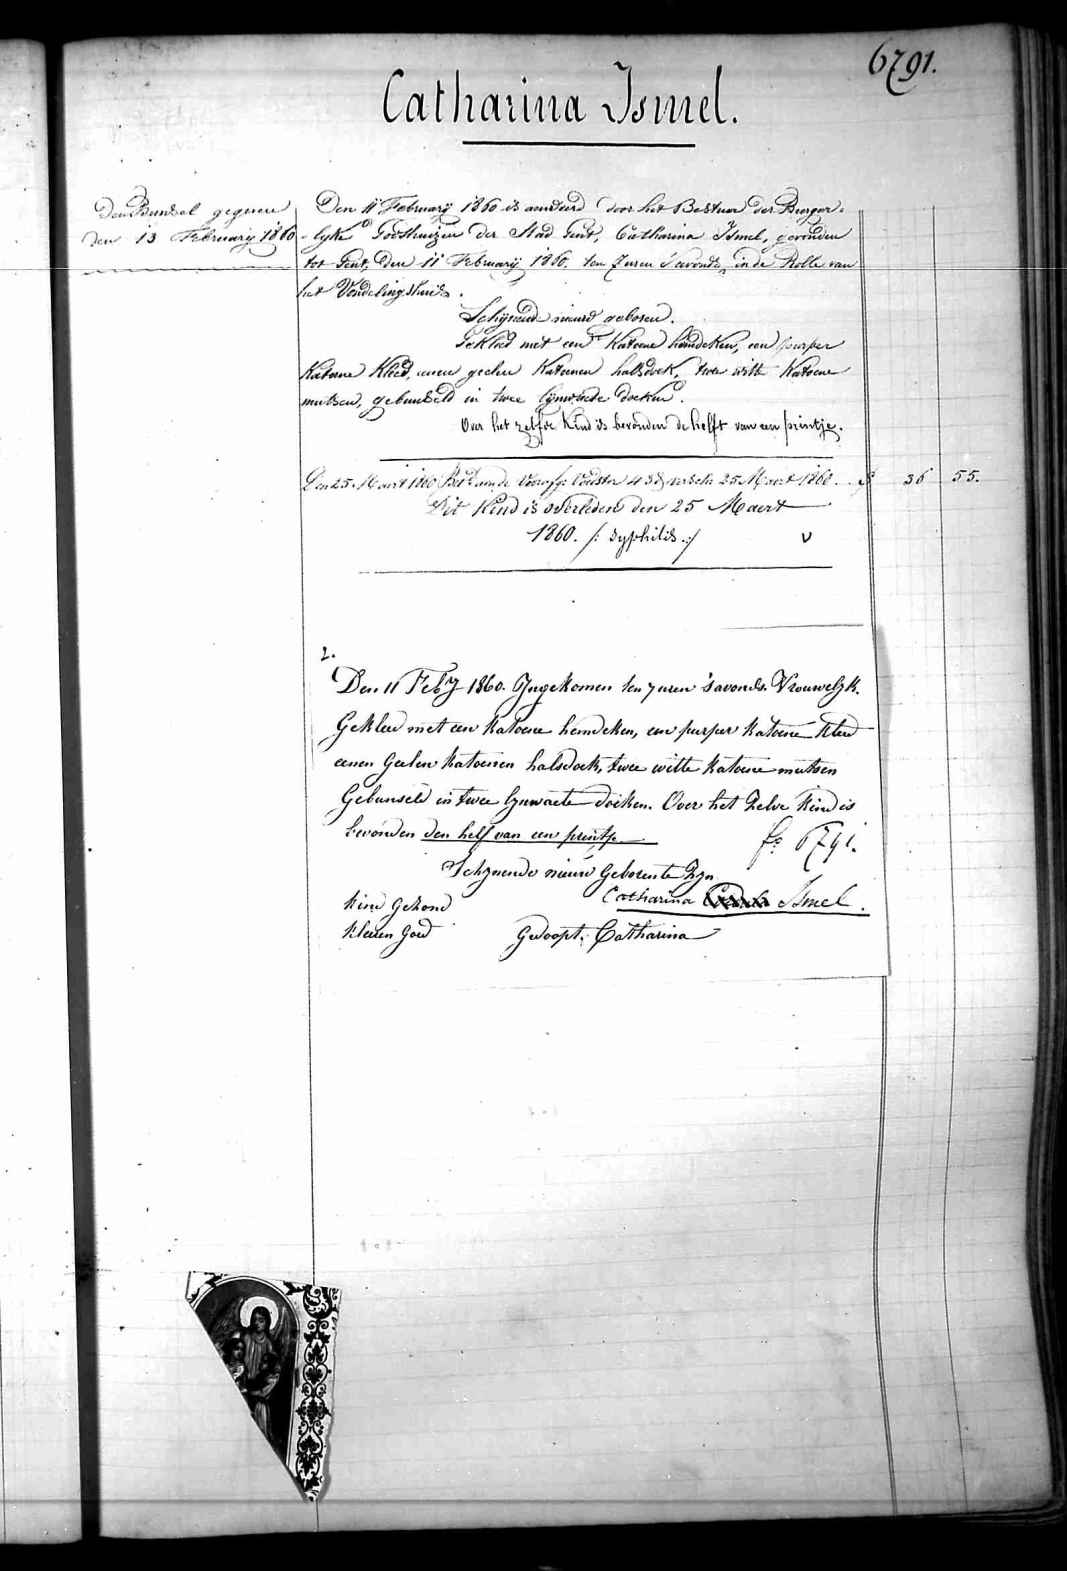 6791.
Catharina Ismel.
Den Bundsel gegeven
den 13 February 1860
Den 11 February 1860 is aenveerd door het Bestuer der Burger-
lyke Godshuizen der Stad Gent, Catharina Ismel, gevonden
tot Gent, den 11 February 1860. ten 7 uren 's avonds, in de Rolle van
het Vondelingshuis.
Schynend nieuw geboren.
Gekleed met een katoene hemdeken, een purper
katoene kleed, eenen geelen katoenen halsdoek, twee witte katoene
mutsen, gebunseld in twee lynwaete doeken.
Over het zelfde kind is bevonden de helft van een printje.
Den 25 Maert 1860 Betd aen de voorsz: voedster 43 d verseh 25 Maert 1860. 36 55.
Dit Kind is overleden den 25 Maert
1860. /: syphilis :/ v
2.
Den 11 Feby 1860. Ingekomen ten 7 uren 's avonds. Vrouwelyk.
Gekleed met een katoene hemdeken, een purper katoene kleed
eenen Geelen katoenen halsdoek, twee witte katoene mutsen
Gebunseld in twee lynwaete doeken. Over het zelve kind is
bevonden den helf van een printje
fo 6791.
Schynende nieuw Geboren te Zyn
Kind Gezond
Catharina Ismel.
Kleeren Goed
Gedoopt: Catharina